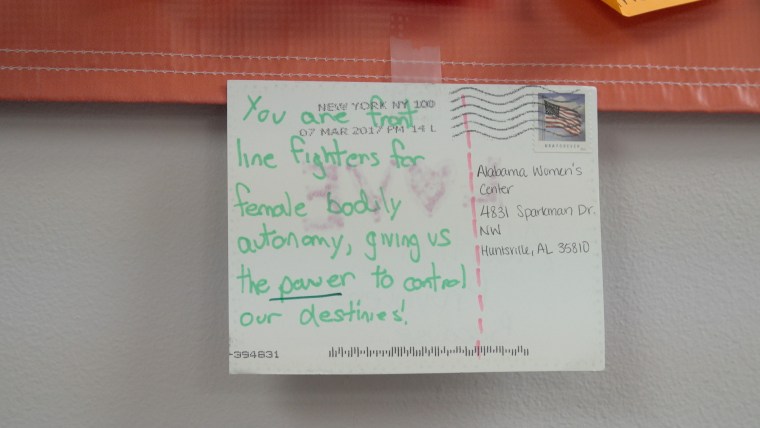 NEW YORK NY 100
07 MAR 2017 PM 14 L
You are front
line fighters for
female bodily
autonomy, giving us
the power to control
our destinies!
Alabama Women's
Center
4831 Sparkman Dr.
NW
Huntsville, AL 35810
-394831